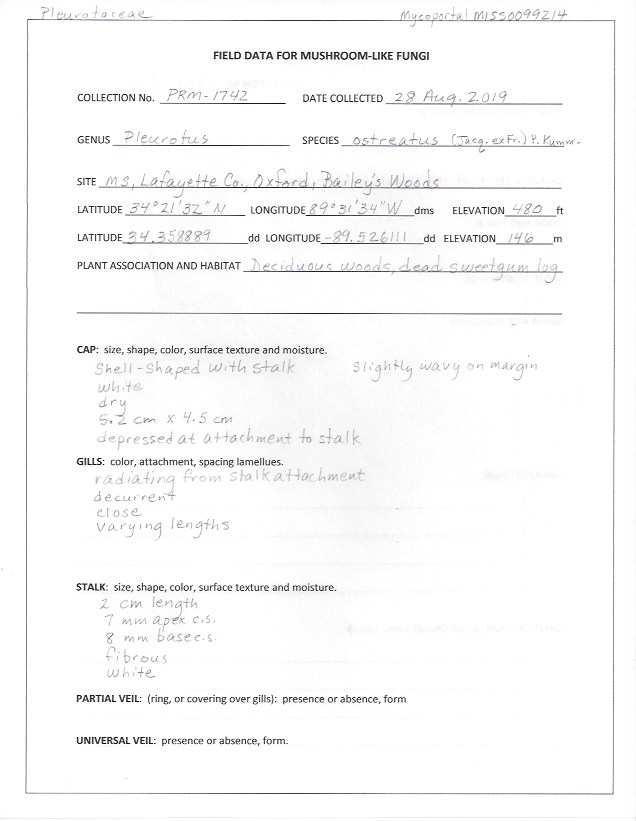 Pleurotaceae Mycoportal MISS0099214
FIELD DATA FOR MUSHROOM-LIKE FUNGI
COLLECTION No. PRM-1742 DATE COLLECTED 28 Aug. 2019
GENUS Pleurotus SPECIES ostreatus (Jacq. ex Fr.) P. Kumm.
SITE MS, Lafayette Co., Oxford, Bailey's Woods
LATITUDE 34°21'32" N LONGITUDE 89°31'34" W dms ELEVATION 480 ft
LATITUDE 34.358889 dd LONGITUDE -89.526111 dd ELEVATION 146 m
PLANT ASSOCIATION AND HABITAT Deciduous woods, dead sweetgum log
CAP: size, shape, color, surface texture and moisture.
Shell-shaped with stalk slightly wavy on margin
white
dry
5.2 cm x 4.5 cm
depressed at attachment to stalk
GILLS: color, attachment, spacing lamellues.
radiating from stalk attachment
decurrent
close
varying lengths
STALK: size, shape, color, surface texture and moisture.
2 cm length
7 mm apex c.s.
8 mm base c.s.
fibrous
white
PARTIAL VEIL: (ring, or covering over gills): presence or absence, form
UNIVERSAL VEIL: presence or absence, form.